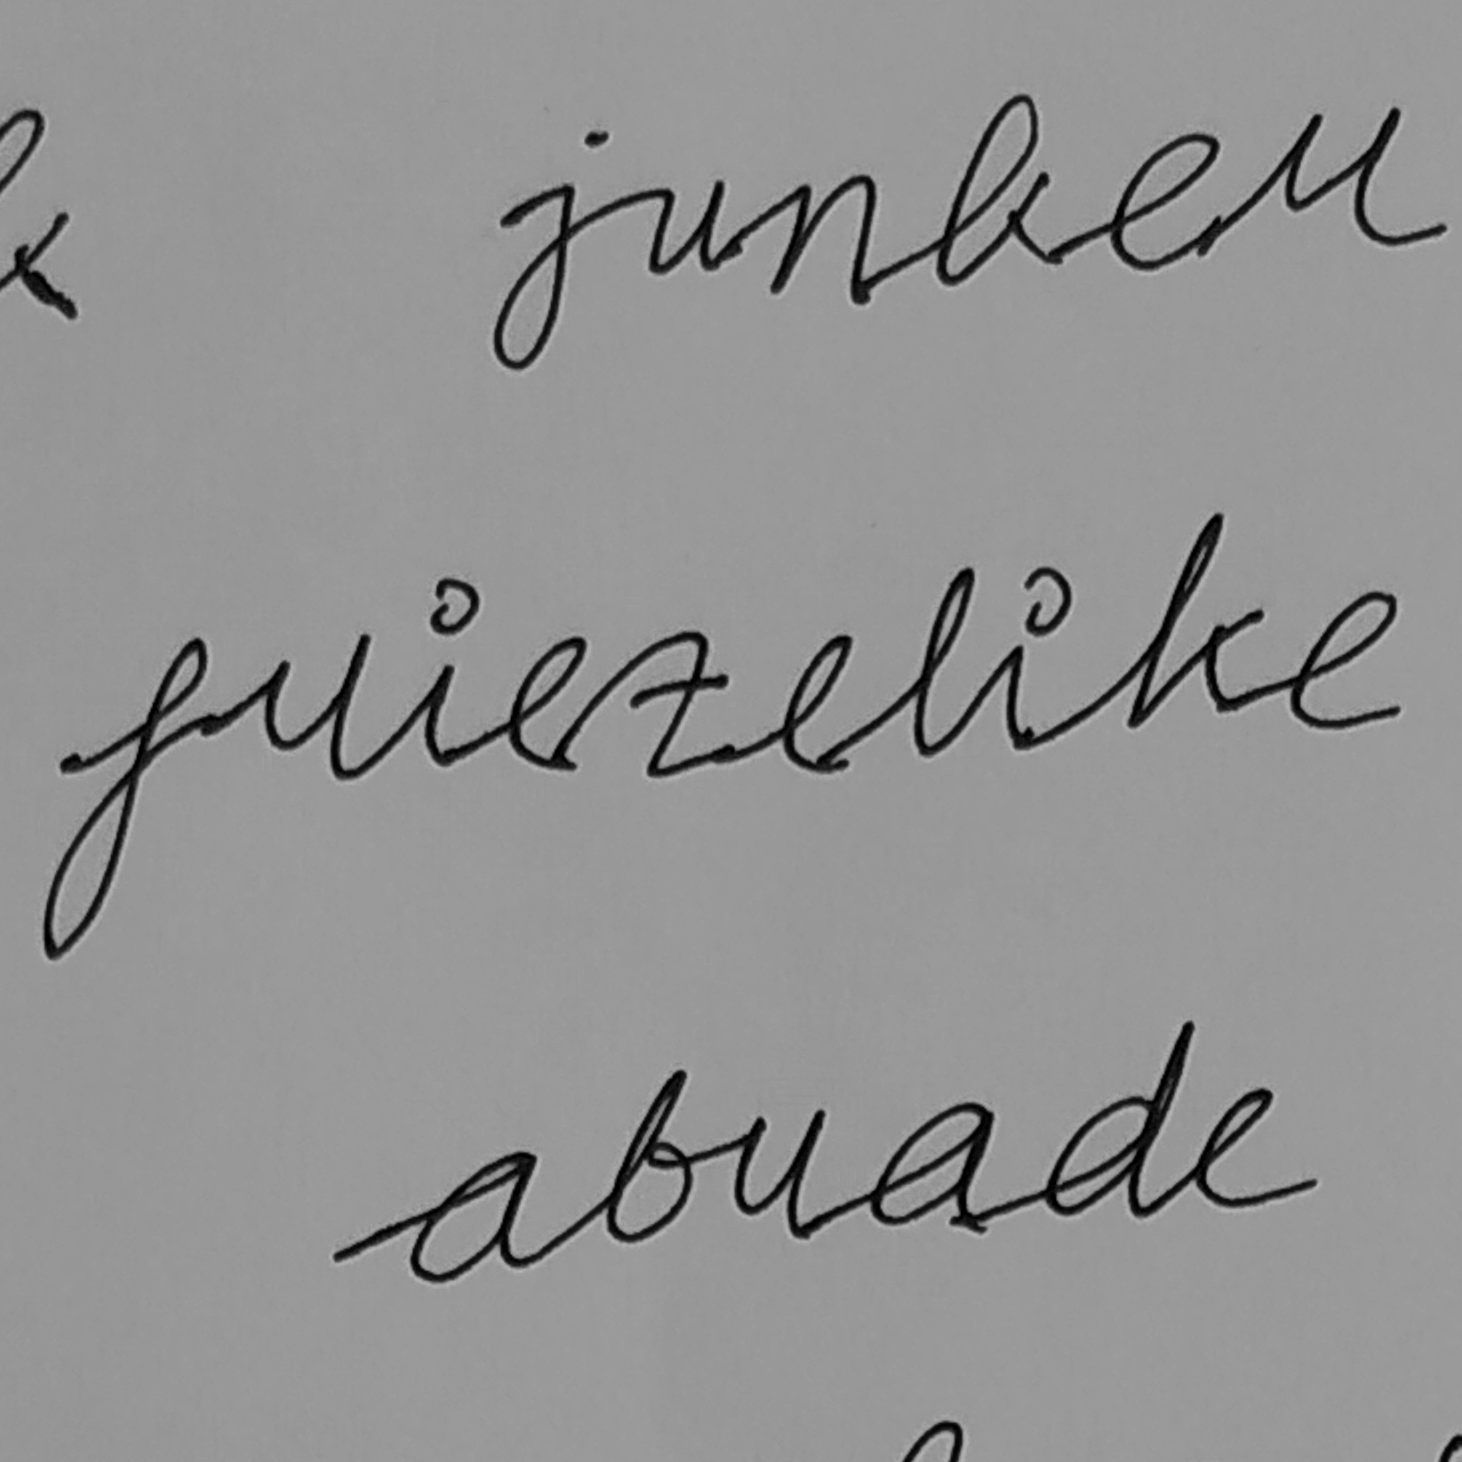 junkeu
fuiezelike
abuade